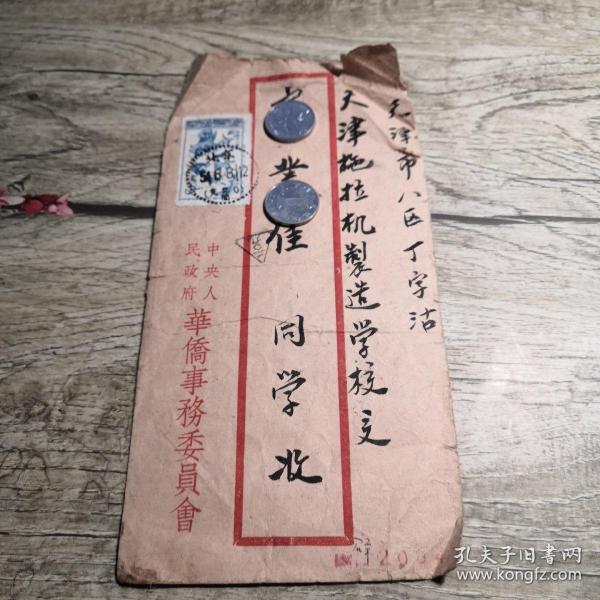 天津市八区丁字沽
天津拖拉机製造学校交
佳 同学收
中央人
民政府
華僑事務委員會
北京
孔夫子旧书网
www.kongfz.com